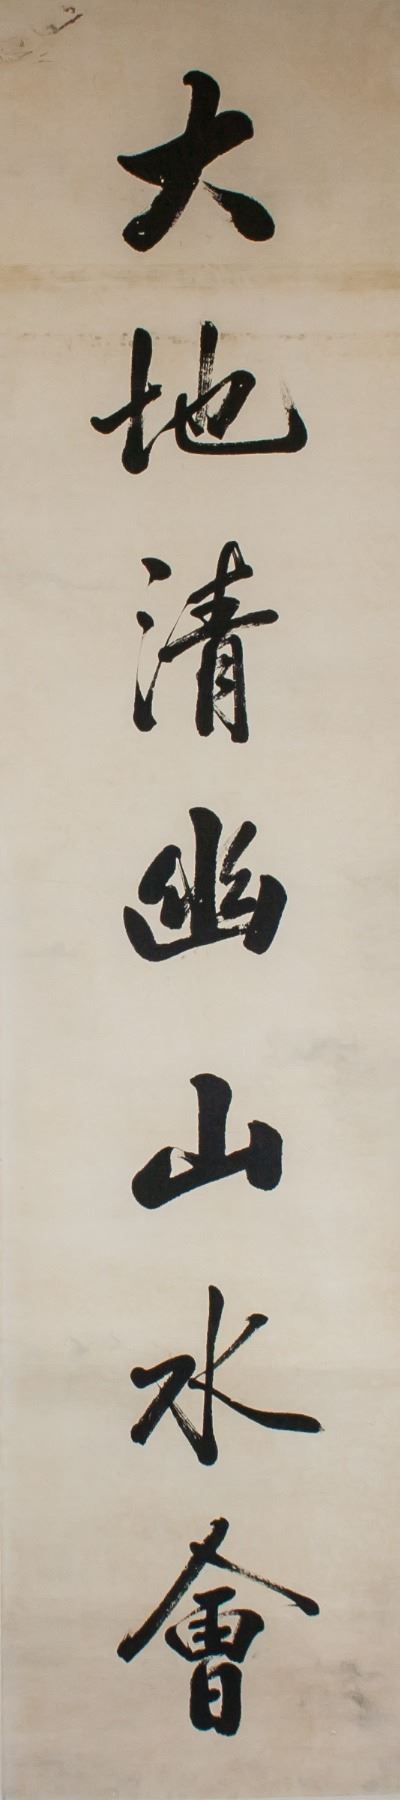 大地清幽山水會